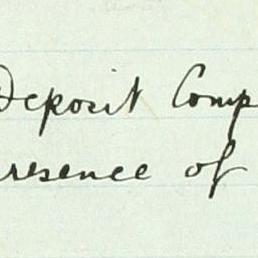 Deposit Comp
resence of